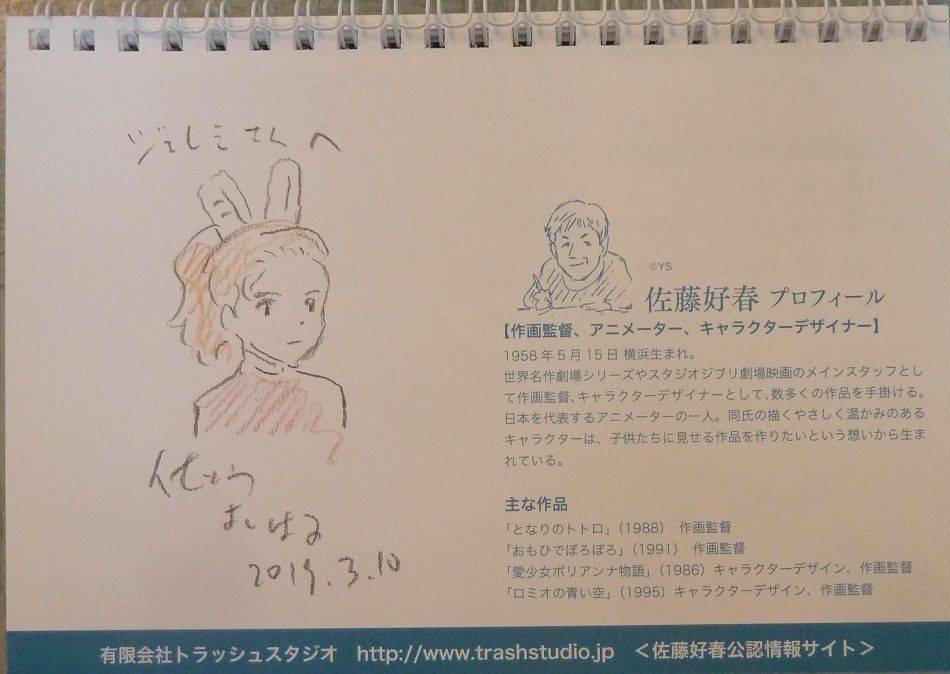 ジェレミさんへ
さとう
よしはる
2019.3.10
©YS
佐藤好春 プロフィール
【作画監督、アニメーター、キャラクターデザイナー】
1958年5月15日 横浜生まれ。
世界名作劇場シリーズやスタジオジブリ劇場映画のメインスタッフとし
て作画監督、キャラクターデザイナーとして、数多くの作品を手掛ける。
日本を代表するアニメーターの一人。同氏の描くやさしく温かみのある
キャラクターは、子供たちに見せる作品を作りたいという想いから生ま
れている。
主な作品
「となりのトトロ」（1988） 作画監督
「おもひでぽろぽろ」（1991） 作画監督
「愛少女ポリアンナ物語」（1986）キャラクターデザイン、作画監督
「ロミオの青い空」（1995）キャラクターデザイン、作画監督
有限会社トラッシュスタジオ http://www.trashstudio.jp ＜佐藤好春公認情報サイト＞